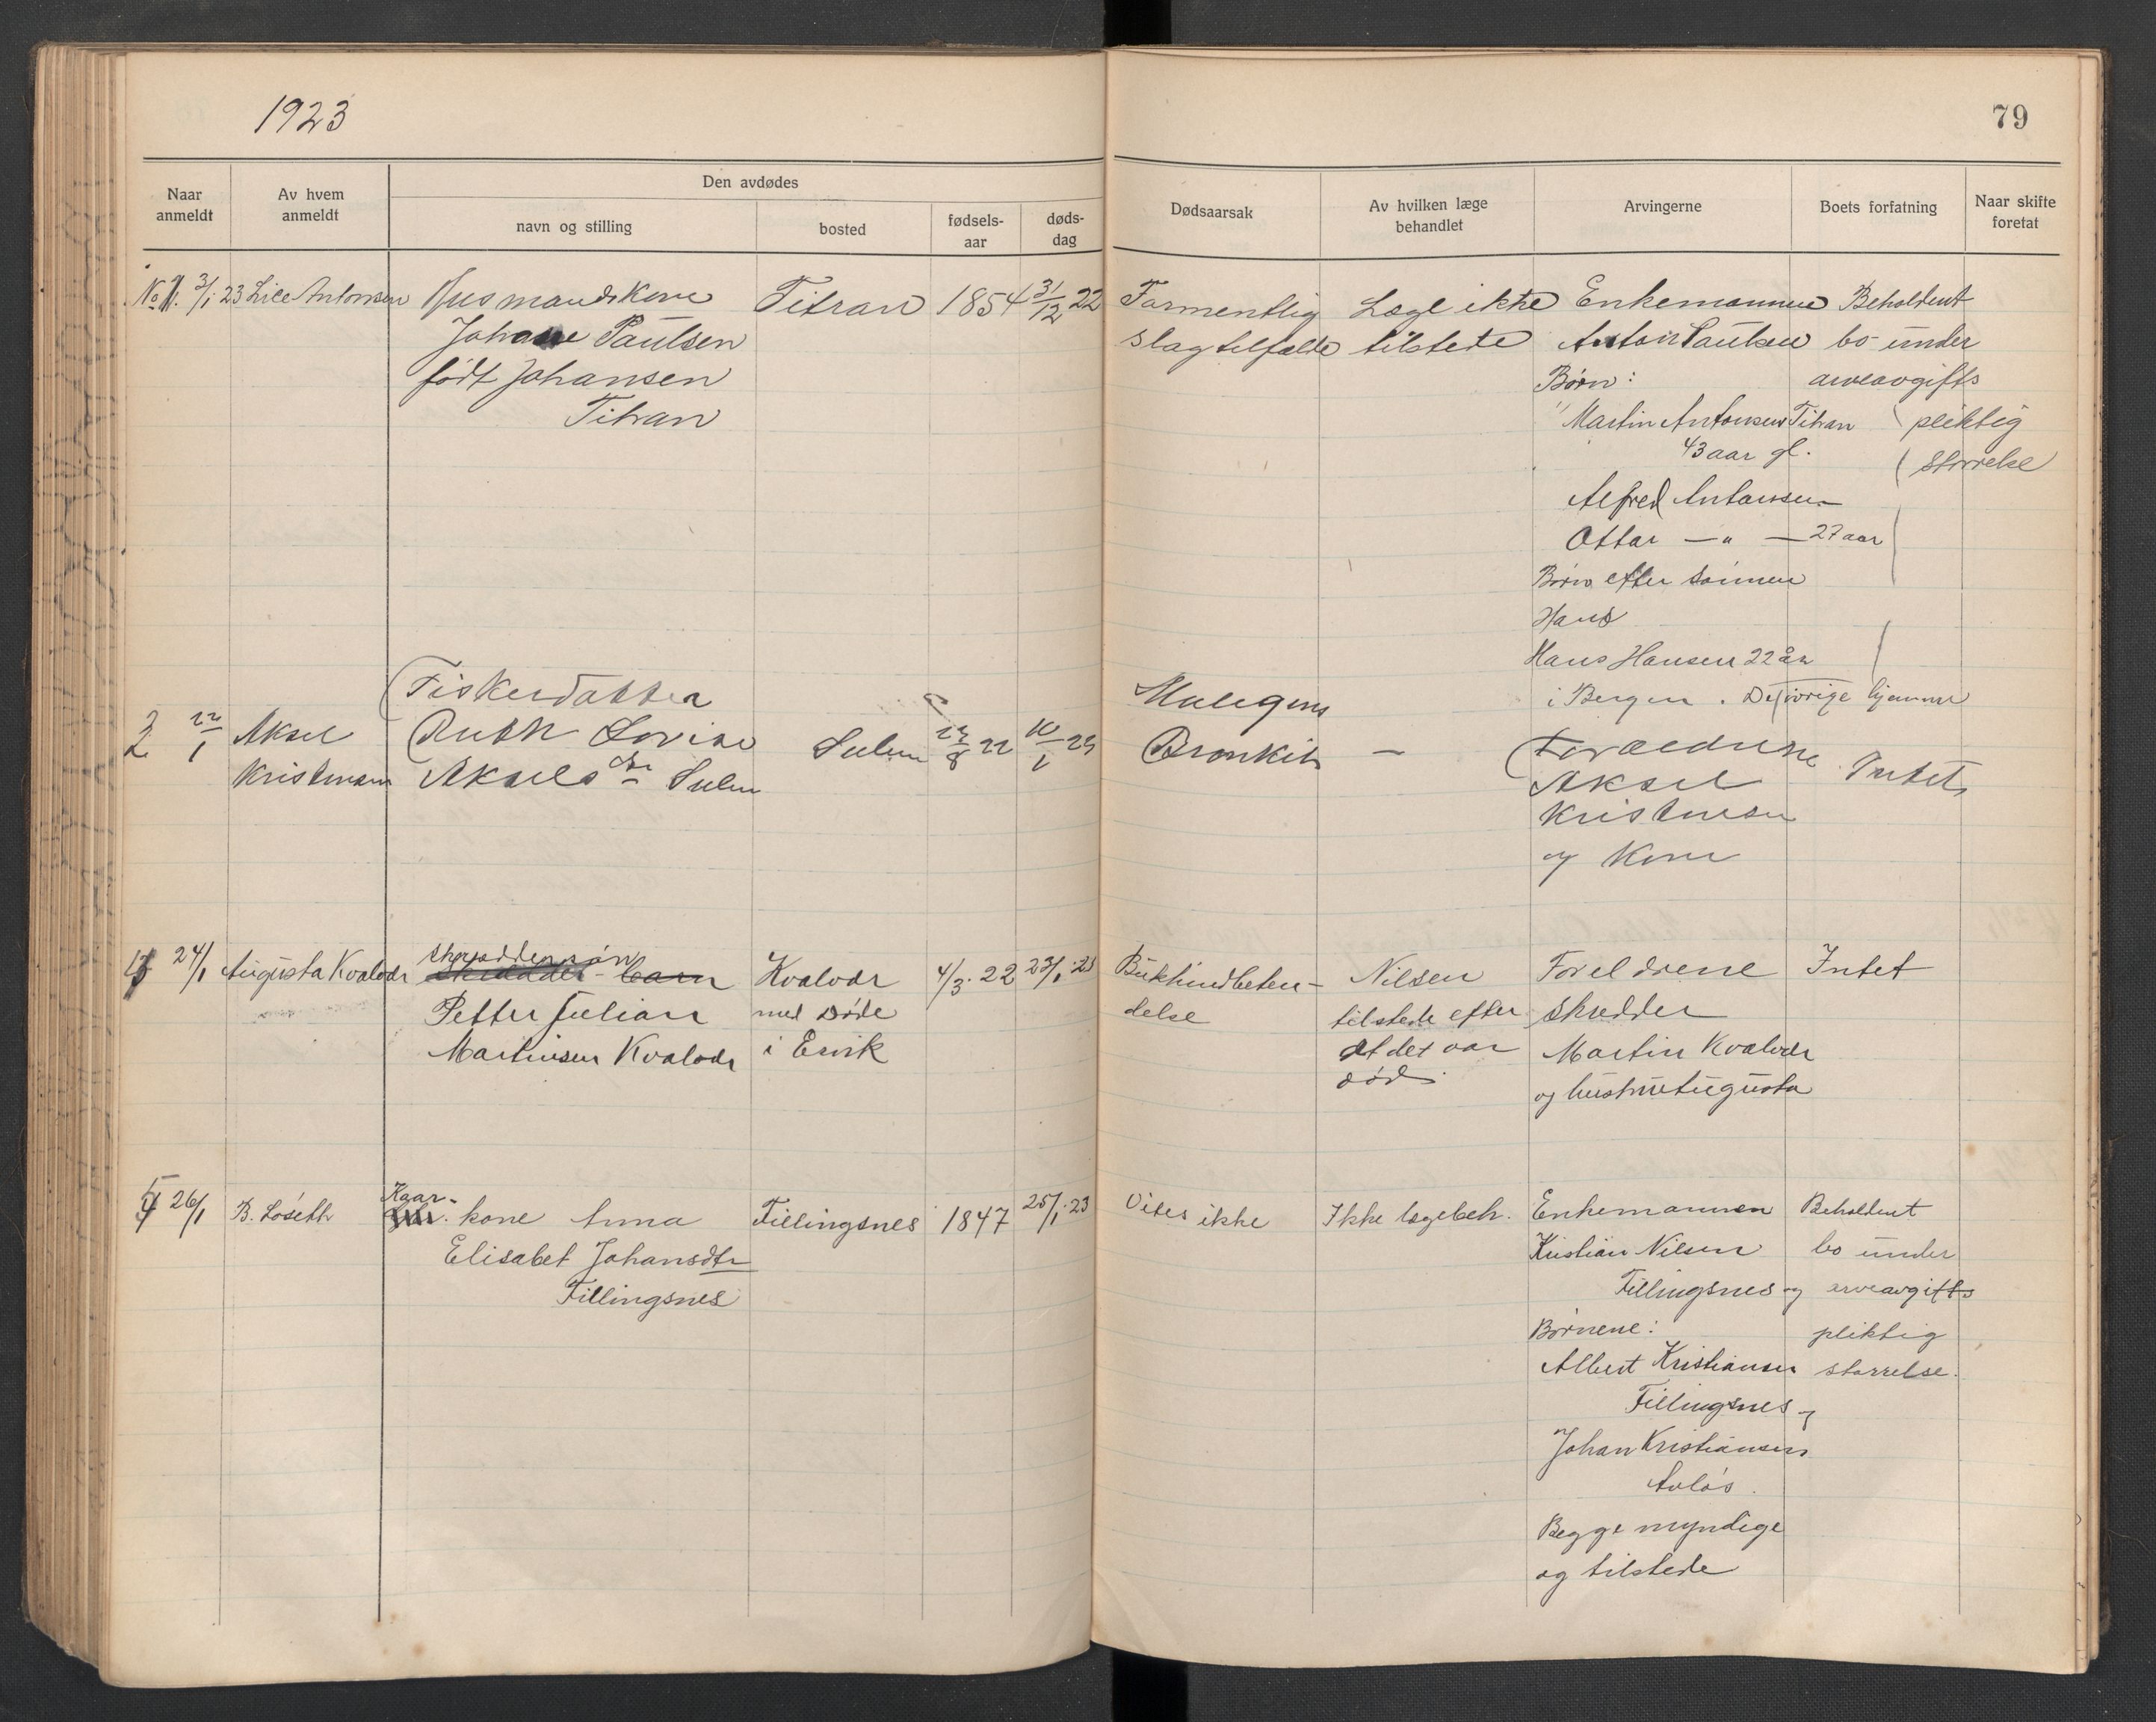 1923
79
Naar anmeldt
Av hvem anmeldt
Den avdødes
navn og stilling
bosted
fødsels-aar
døds-dag
Dødsaarsak
Av hvilken læge behandlet
Arvingerne
Boets forfatning
Naar skifte foretat
No 1. 3/1 23 Antonsen Husmandskone Titran 1854 31/12 22 Formentlig Læge ikke Enkemannen Beholdent
Johane Paulsen slagtilfælde tilstede Anton Paulsen bo under
født Johansen Børn: arveavgifts
Titran Martin Antonsen Titran pliktig
43 aar gl. størrelse
Alfred Antonsen
Ottar — " — 27 aar
Børn efter sønnen
Hans
Hans Hansen 22 år
i Bergen. De øvrige hjemme
Fiskerdatter
2 22/1 Aksel Ruth Lovise Sulen 22 10/1 23 Bronkit — Forældrene Intet
Aksels dtr Sulen Aksel
og Kone
24/1 Augusta Kvalvær skreddersøn Kvalvær 4/3. 22 23/1. 23 Bukhindbeten- Nilsen Foreldrene Intet
Petter Julian med Døde delse tilstede efter skredder
Martinsen Kvalvær i Ervik at det var Martin Kvalvær
død. og hustru Augusta
26/1 B. Løseth Kaar- kone Anna Fillingsnes 1847 25/1. 23 Vites ikke Ikke lægebeh. Enkemannen Beholdent
Elisabet Johansdtr Kristian Nilsen bo under
Fillingsnes Fillingsnes og arveavgifts
Børnene: pliktig
Albert Kristiansen størrelse.
Fillingsnes og
Johan Kristiansen
Begge myndige
og tilstede